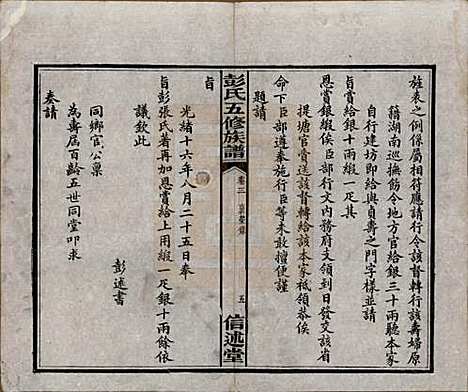 旌表之例係屬相符應請行令該督轉行該壽婦原
籍湖南巡撫飭令地方官給銀三十兩聽本家
自行建坊即給與貞壽之門字樣並請
賞給銀十兩緞一疋其
恩賞銀緞俟臣部行文內務府支領到日發交該省
提塘官賫送該督轉給該本家祗領恭俟
命下臣部遵奉施行臣等未敢擅便謹
題請
彭氏五修族譜
卷三
五
信述堂
旨
光緒十六年八月二十五日奉
旨彭張氏著再加恩賞給上用緞一疋銀十兩餘依
議欽此
同鄉官公稟
為壽屆百齡五世同堂叩求
奏請
彭述書